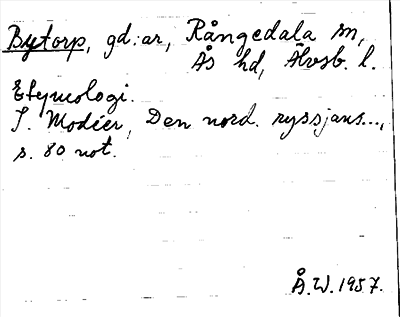 Bytorp, gd:ar, Rångedala sn,
Ås hd, Älvsb. l.
Etymologi.
I. Modéer, Den nord. ryssjans...,
s. 80 not.
Å.W. 1957.